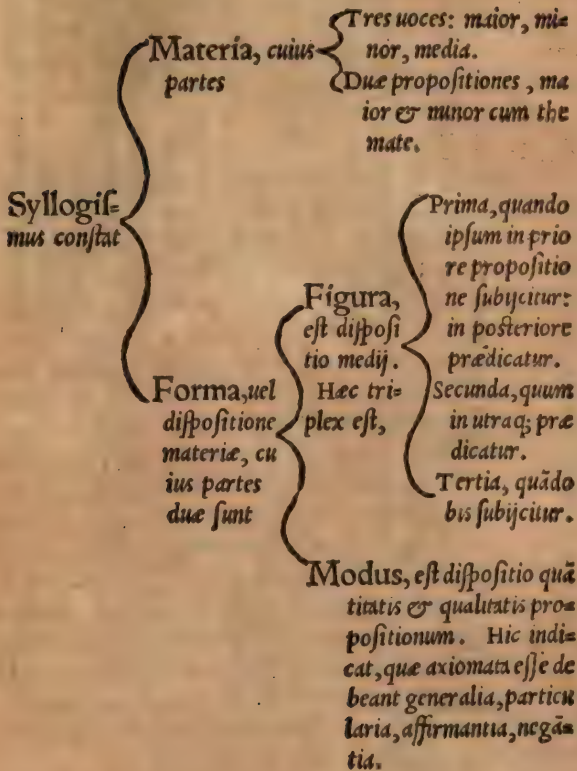 Syllogiſ=
mus conſtat
Materia, cuius
partes
Tres uoces: maior, mi=
nor, media.
Duæ propoſitiones, ma
ior & minor cum the
mate.
Forma, uel
diſpoſitione
materiæ, cu
ius partes
duæ ſunt
Figura,
eſt diſpoſi
tio medij.
Hæc tri=
plex eſt,
Prima, quando
ipſum in prio
re propoſitio
ne ſubijcitur:
in poſteriore
prædicatur.
Secunda, quum
in utraq; præ
dicatur.
Tertia, quãdo
bis ſubijcitur.
Modus, eſt diſpoſitio quã
titatis & qualitatis pro=
poſitionum. Hic indi=
cat, quæ axiomata eſſe de
beant generalia, particu
laria, affirmantia, negã=
tia.